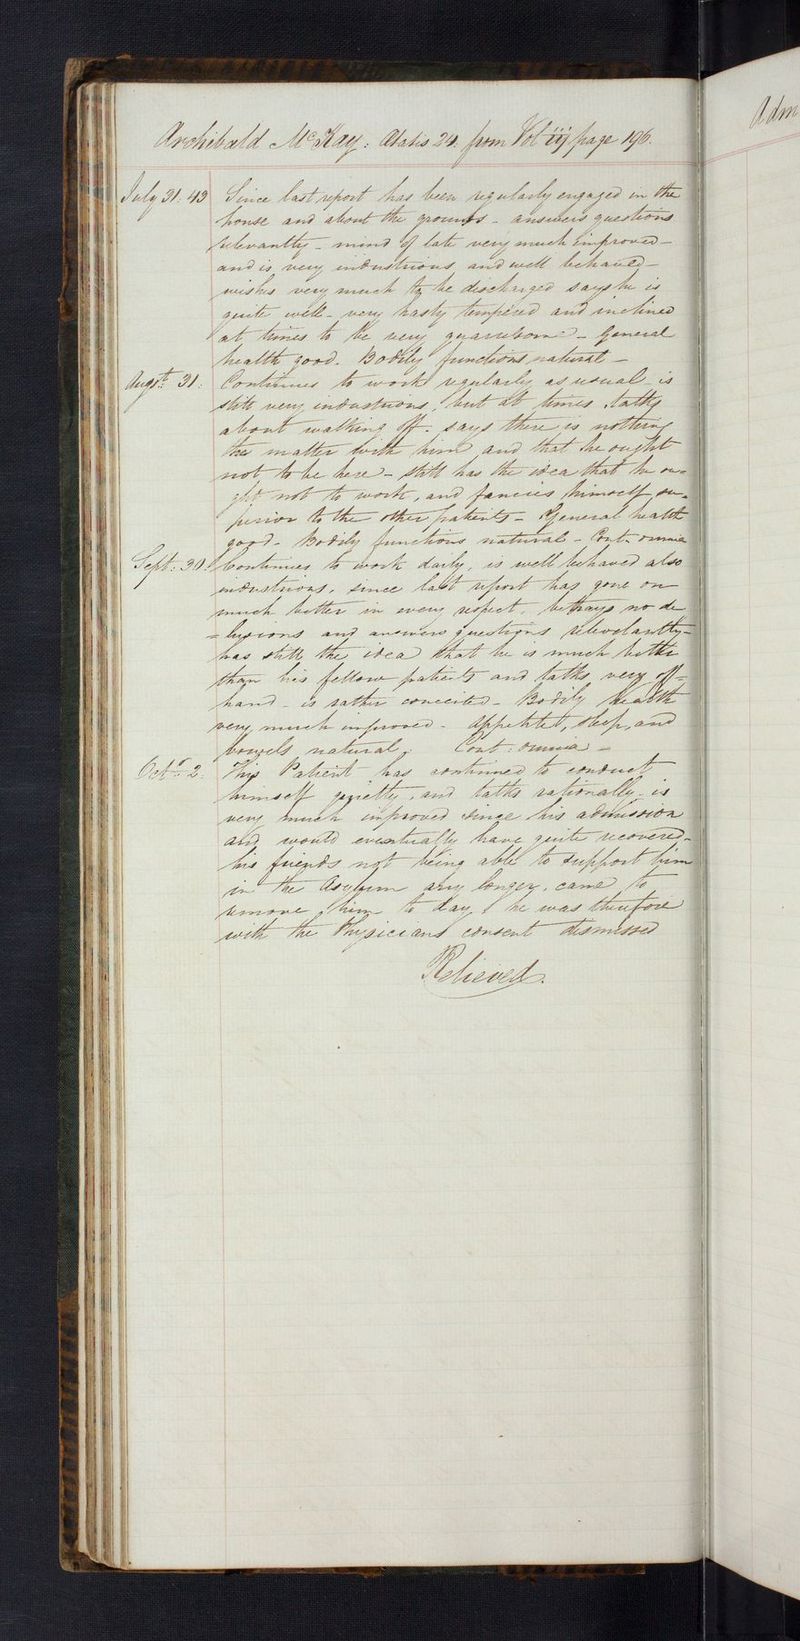 Archibald McKay: Ætatis 24. from Vol iij page 196.
Adm
July 31. 43 Since last report has been regularly engaged in the
house and about the grounds - answers questions
relevantly - mind of late very much improved -
and is very industrious and well behaved -
wishes very much to be discharged says he is
quite well - very hasty tempered and inclined
at times to be very quarrelsome - General
health good. Bodily functions natural -
Augst. 31. Continues to work regularly as usual - is
still very industrious, but at times talks
about walking off. says there is nothing
the matter with him and that he ought
not to be here - still has the idea that he ou-
ght not to work, and fancies himself su-
perior to the other patients - General health
good - Bodily functions natural - Cont. omnia
Sept: 30. Continues to work daily, is well behaved also
industrious, since last report has gone on
much better in every respect, betrays no de
=lusions and answers questions relevantly -
has still the idea that he is much better
than his fellow patients and talks very off=
hand - is rather conceited - Bodily health
very much improved - Appetite, sleep, and
bowels natural. Cont: omnia -
Octr. 2. This Patient has continued to conduct
himself quietly, and talks rationally - is
very much improved since his admission
and would eventually have quite recovered -
his friends not being able to support him
in the Asylum any longer, came to
remove him to day, he was therefore
with the Physicians consent dismissed
Relieved.